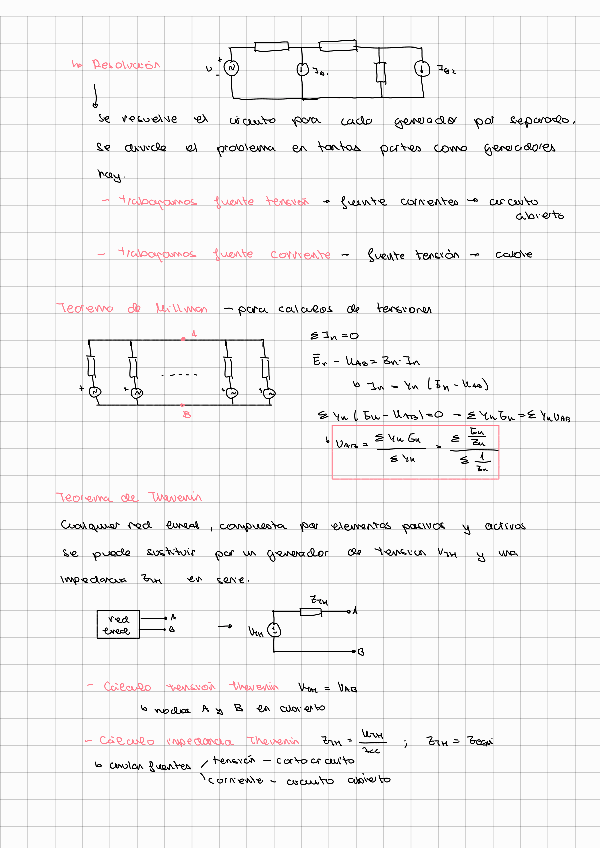 ↳ Resolución
U + - Ig1 Ig2
Se resuelve el circuito para cada generador por separado.
Se divide el problema en tantas partes como generadores
hay.
- trabajamos fuente tensión → fuente corrientes → circuito
abierto
- trabajamos fuente corriente - fuente tensión → cable
Teorema de Millman - para calculos de tensiones
A
B
Σ In = 0
En - UAB = Zn · In
↳ In = Yn (En - UAB)
Σ Yn (En - UAB) = 0 - Σ Yn En = Σ Yn UAB
↳ UAB = Σ Yn En / Σ Yn = Σ En/Zn / Σ 1/Zn
Teorema de Thevenin
Cualquier red lineal, compuesta por elementos pasivos y activos
se puede sustituir por un generador de tensión VTH y una
impedancia ZTH en serie.
red lineal A B → VTH ZTH A B
- Cálculo tensión thevenin VTH = VAB
↳ nodos A y B en abierto
- Cálculo impedancia Thevenin ZTH = UTH / Icc ; ZTH = Zequi
↳ anular fuentes / tensión - cortocircuito
\ corriente - circuito abierto